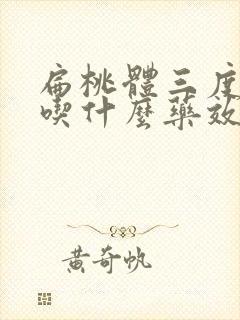 扁桃體三度
喫什麼藥效
黃奇帆